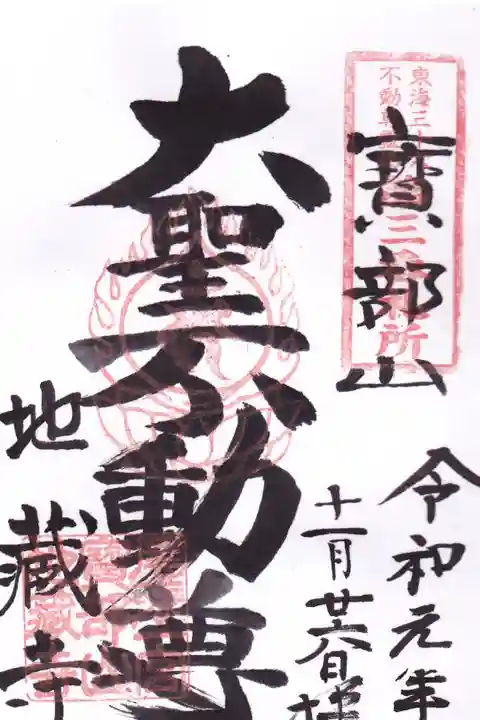 寳部山
令和元年
十一月廿六日
大聖不動尊
地蔵寺
東海三十
不動尊霊
三 所